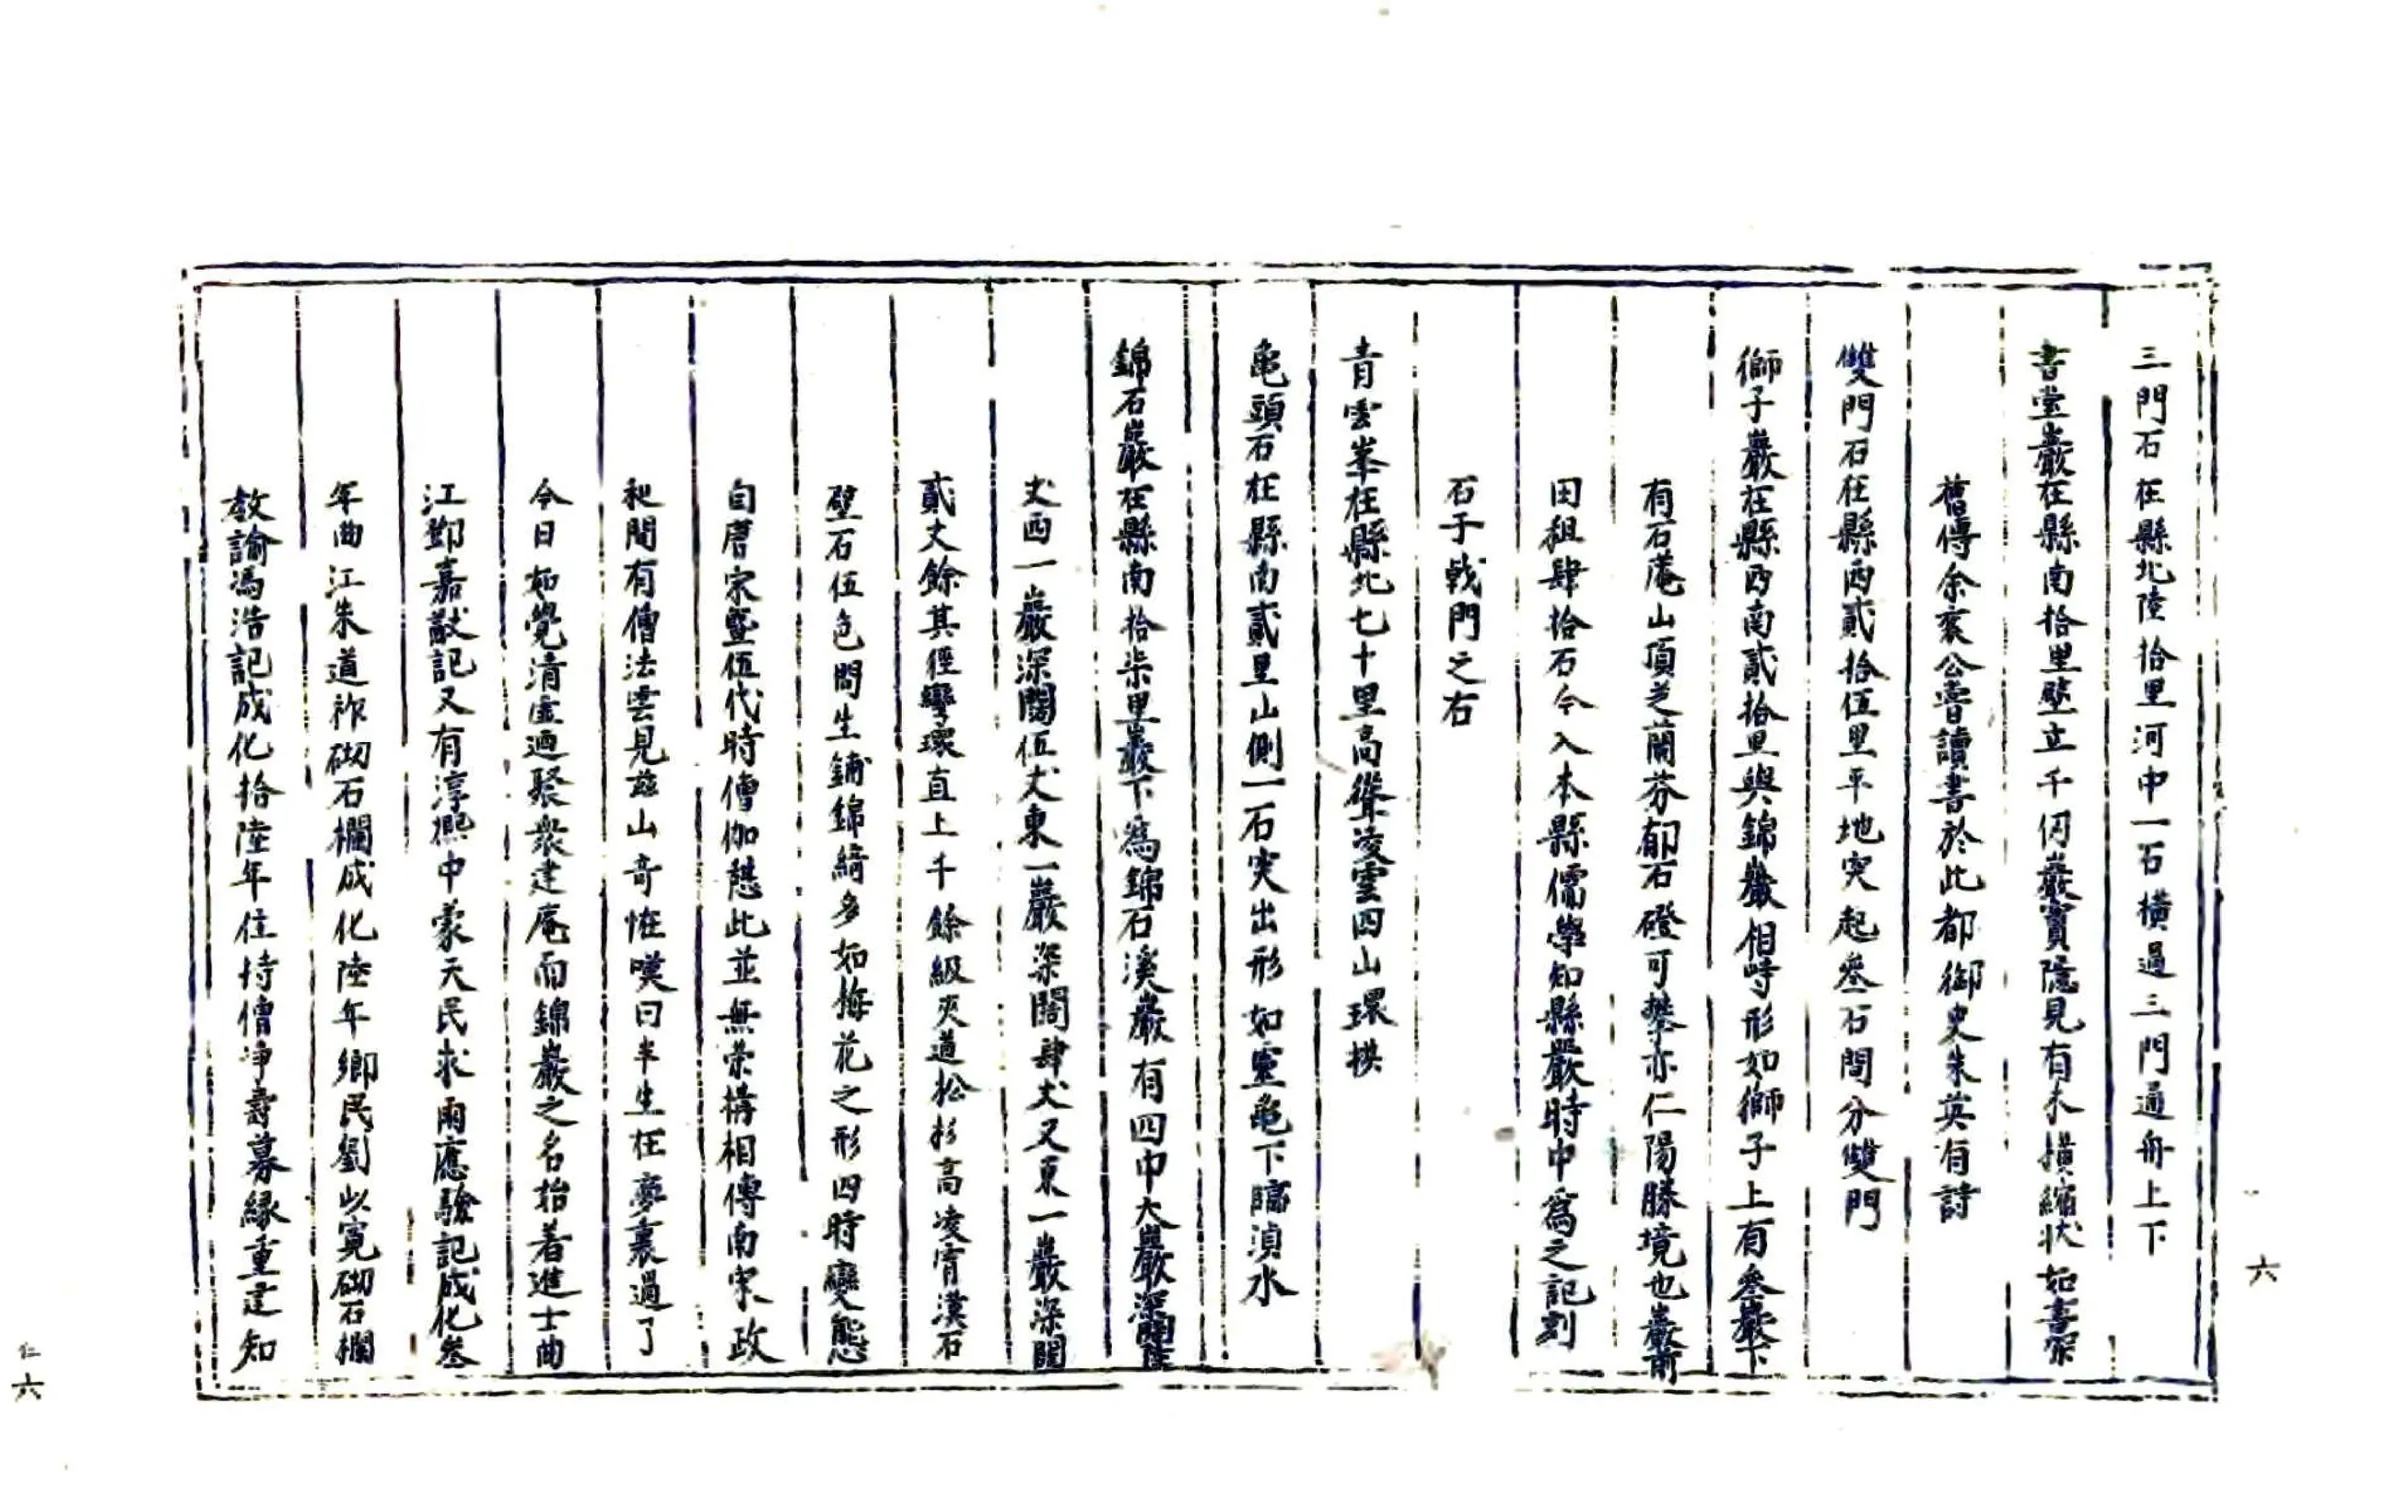 三門石在縣北陸拾里河中一石橫過三門通舟上下
書堂巖在縣南拾里壁立千仞巖竇隱見有木橫縮狀如書架
舊傳余襄公嘗讀書於此都御史朱英有詩
雙門石在縣西貳拾伍里平地突起叁石間分雙門
獅子巖在縣西南貳拾里與錦巖相峙形如獅子上有叁巖下
有石菴山頂芝蘭芬郁石磴可攀亦仁陽勝境也巖前
田租肆拾石今入本縣儒學知縣嚴時中爲之記刻
石于戟門之右
青雲峯在縣北七十里高聳凌雲四山環拱
龜頭石在縣南貳里山側一石突出形如靈龜下臨湞水
錦石巖在縣南拾柒里巖下爲錦石溪巖有四中大巖深闊陸
丈西一巖深闊伍丈東一巖深闊肆丈又東一巖深闊
貳丈餘其徑彎環直上千餘級夾道松杉高凌霄漢石
壁石伍色間生鋪錦綺多如梅花之形四時變態
自唐宋暨伍代時僧伽憇此並無荣構相傳南宋政
和間有僧法雲見玆山奇恠嘆曰半生在夢裏過了
今日如覺清虛迺聚衆建庵而錦巖之名始着進士曲
江鄧嘉猷記又有淳熈中蒙天民求雨應驗記成化叁
年曲江朱道祚砌石欄成化陸年鄉民劉以寬砌石欄
教諭馮浩記成化拾陸年住持僧净壽募緣重建知
六
仁
六